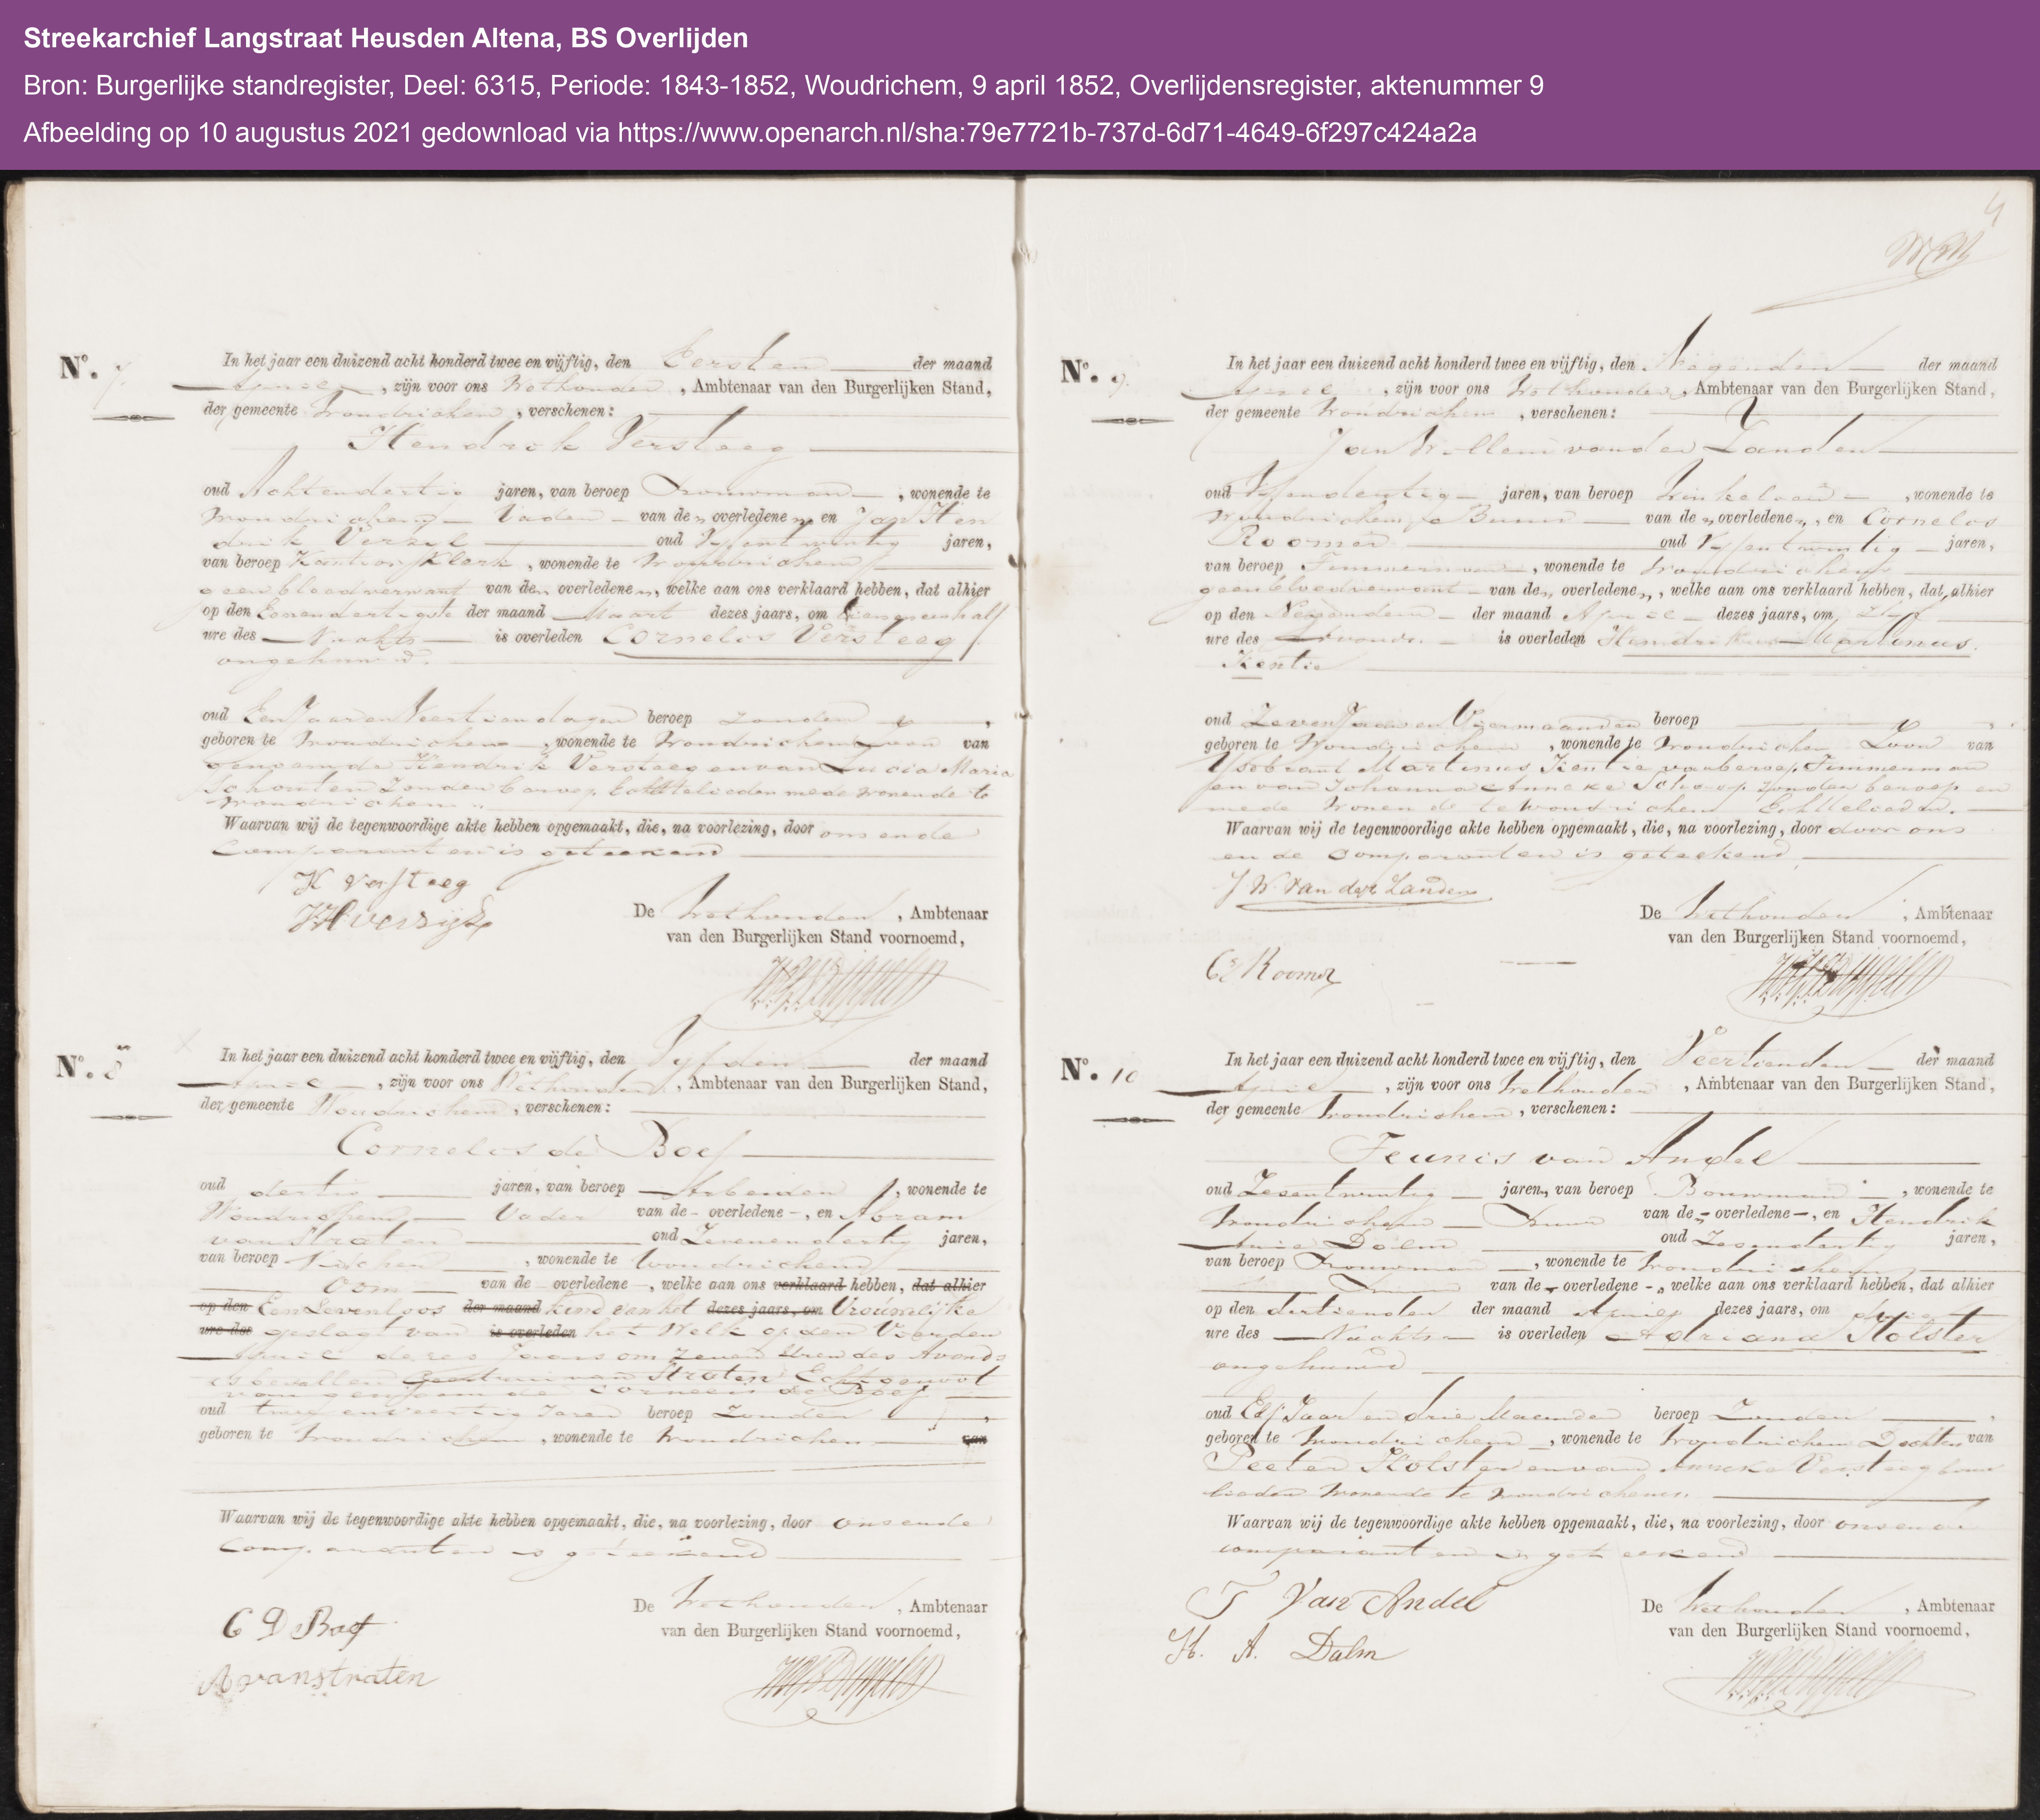 Streekarchief Langstraat Heusden Altena, BS Overlijden
Bron: Burgerlijke standregister, Deel: 6315, Periode: 1843-1852, Woudrichem, 9 april 1852, Overlijdensregister, aktenummer 9
Afbeelding op 10 augustus 2021 gedownload via https://www.openarch.nl/sha:79e7721b-737d-6d71-4649-6f297c424a2a
No. 7.
In het jaar een duizend acht honderd twee en vijftig, den Eersten der maand
April, zijn voor ons Wethouder, Ambtenaar van den Burgerlijken Stand,
der gemeente Woudrichem, verschenen:
Hendrik Versteeg
oud Achtendertig jaren, van beroep Bouwman, wonende te
Woudrichem Vader van de overledene en Jan Hen
drik Verzyl oud Vyfentwintig jaren,
van beroep Kantoor Klerk, wonende te Woudrichem
geen bloedverwant van de overledene, welke aan ons verklaard hebben, dat alhier
op den Eenendertigste der maand Maart dezes jaars, om half
ure des Nachts is overleden Cornelis Versteeg
ongehuwd.
oud Een Jaar en Veertien dagen beroep zonder,
geboren te Woudrichem, wonende te Woudrichem Zoon van
genoemde Hendrik Versteeg en van Lucia Maria
Schouten Zonder beroep Echtelieden mede wonende te
Woudrichem
Waarvan wij de tegenwoordige akte hebben opgemaakt, die, na voorlezing, door ons en de
Comparanten is geteekend
H versteeg
De Wethouder, Ambtenaar
van den Burgerlijken Stand voornoemd,
No. 8
In het jaar een duizend acht honderd twee en vijftig, den Vyfden der maand
April, zijn voor ons Wethouder, Ambtenaar van den Burgerlijken Stand,
der gemeente Woudrichem, verschenen:
Cornelis de Boef
oud dertig jaren, van beroep Arbeider, wonende te
Woudrichem Vader van de overledene, en Abram
van Straten oud Zevenendertig jaren,
van beroep, wonende te Woudrichem
Oom van de overledene, welke aan ons verklaard hebben, dat alhier
op den Een Levenloos der maand kind van het dezes jaars, om Vrouwelijke
ure des geslagt van is overleden het Welk op den Vierden
April dezes Jaars om zeven Uren des Avonds
is bevallen van Straten Echtgenoot
van genoemde Cornelis de Boef
oud twee en veertig Jaren beroep Zonder,
geboren te Woudrichem, wonende te Woudrichem van
Waarvan wij de tegenwoordige akte hebben opgemaakt, die, na voorlezing, door ons en de
Comparanten is geteekend
De Wethouder, Ambtenaar
van den Burgerlijken Stand voornoemd,
C D Boef
A vanstraten
4
No. 9.
In het jaar een duizend acht honderd twee en vijftig, den Negenden der maand
April, zijn voor ons Wethouder, Ambtenaar van den Burgerlijken Stand,
der gemeente Woudrichem, verschenen:
Jan Willem van der Zanden
oud Vyfendertig jaren, van beroep, wonende te
Woudrichem Buur van de overledene, en Cornelis
Roomer oud Vyfentwintig jaren,
van beroep Timmerman, wonende te Woudrichem
geen bloedverwant van de overledene, welke aan ons verklaard hebben, dat alhier
op den Negenden der maand April dezes jaars, om
ure des is overleden Hendrikus Martinus
Kentie
oud Zeven Jaar en Vier maanden beroep,
geboren te Woudrichem, wonende te Woudrichem Zoon van
Ysebrant Martinus Kentie van beroep Timmerman
en van Johanna Anneke Schoop zonder beroep en
mede Wonende te Woudrichem Echtelieden.
Waarvan wij de tegenwoordige akte hebben opgemaakt, die, na voorlezing, door door ons
en de comparanten is geteekend
J W van der Zanden
De Wethouder, Ambtenaar
van den Burgerlijken Stand voornoemd,
Roomer
No. 10
In het jaar een duizend acht honderd twee en vijftig, den Veertienden der maand
April, zijn voor ons Wethouder, Ambtenaar van den Burgerlijken Stand,
der gemeente Woudrichem, verschenen:
Teunis van Andel
oud Zesentwintig jaren, van beroep Bouwman, wonende te
Woudrichem Buur van de overledene, en Hendrik
Arie Dolm oud Zesendertig jaren,
van beroep Bouwman, wonende te Woudrichem
Buur van de overledene, welke aan ons verklaard hebben, dat alhier
op den dertienden der maand April dezes jaars, om
ure des Nachts is overleden Adriana Holster
ongehuwd
oud Elf Jaar en drie Maanden beroep Zonder,
geboren te Woudrichem, wonende te Woudrichem Dochter van
Peeter Holster en van Anneke Versteeg bouw
lieden Wonende te Woudrichem.
Waarvan wij de tegenwoordige akte hebben opgemaakt, die, na voorlezing, door ons en de
comparanten is geteekend
T Van Andel
De Wethouder, Ambtenaar
van den Burgerlijken Stand voornoemd,
H. A. Dalm